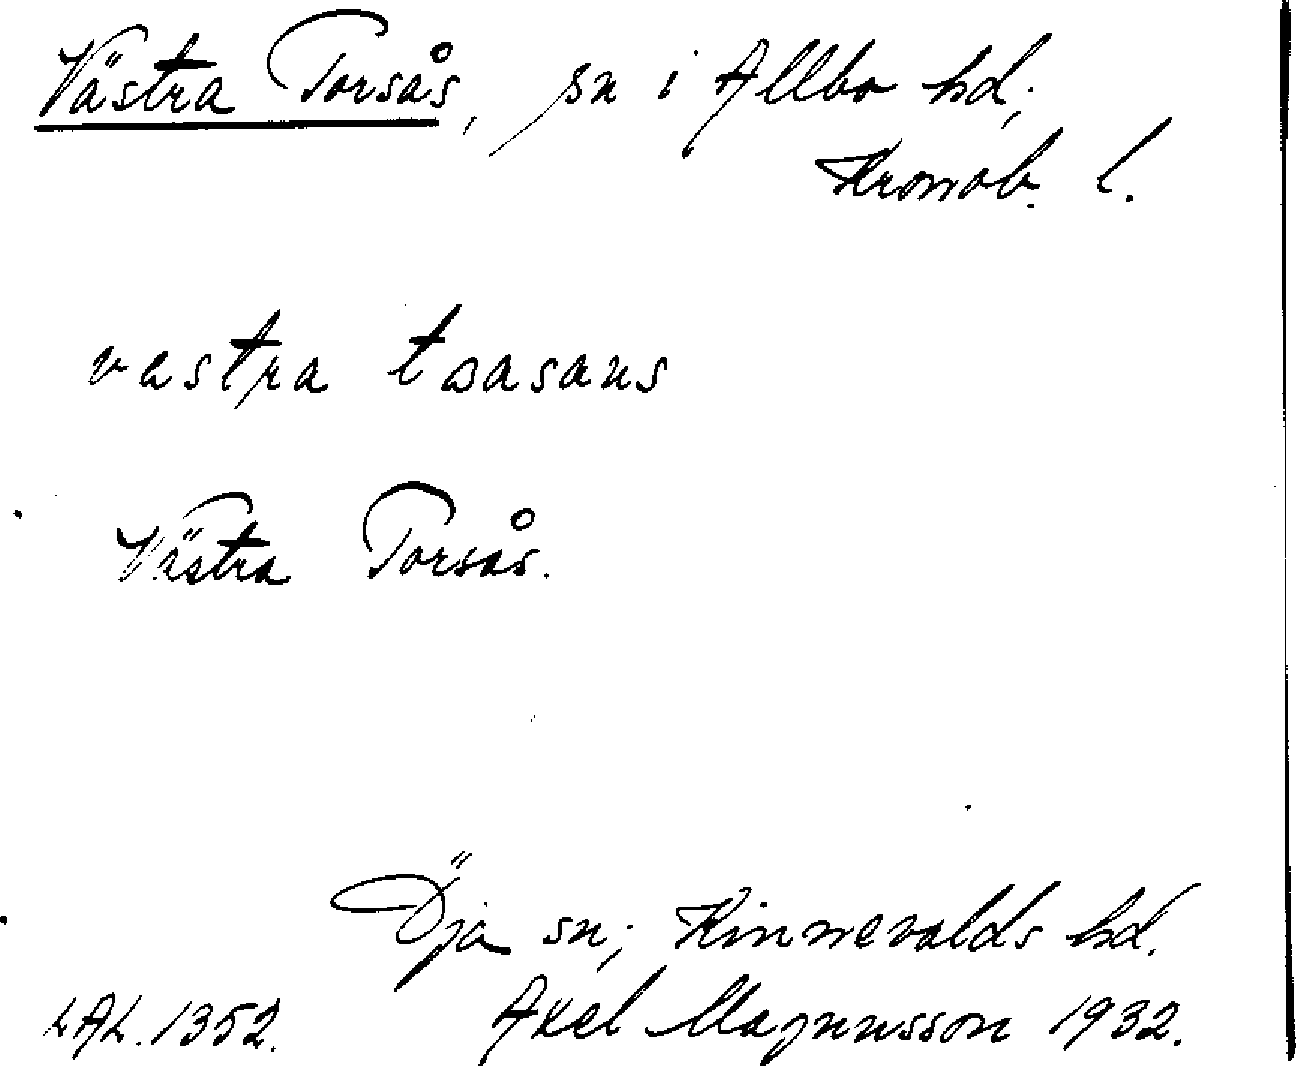 Västra Torsås, sn i Allbo hd,
Kronob. l.
vastra toasaus
Västra Torsås.
Öja sn, Kinnevalds hd.
LAL. 1352. Axel Magnusson 1932.